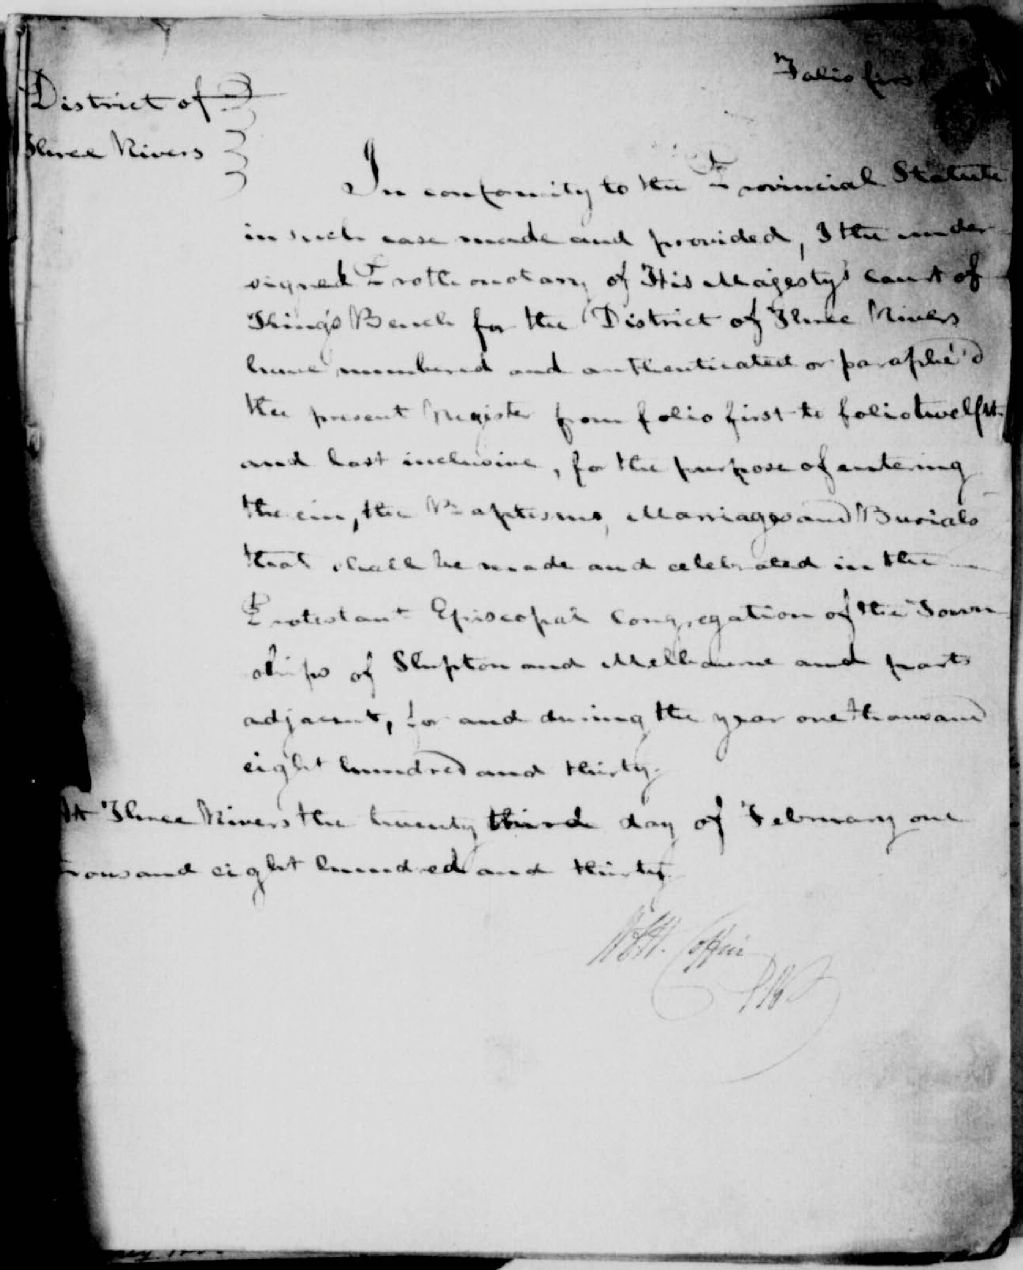 Folio first
District of
Three Rivers
In conformity to the Provincial Statute
in such case made and provided, I the under-
signed Prothonotary of His Majesty's Court of
King's Bench for the District of Three Rivers
have numbered and authenticated or paraphe'd
the present Register from folio first to folio twelfth
and last inclusive, for the purpose of entering
therein, the Baptisms, Marriages and Burials
that shall be made and celebrated in the
Protestant Episcopal Congregation of the Town-
ships of Shipton and Melbourne and parts
adjacent, for and during the year one thousand
eight hundred and thirty.
At Three Rivers the twenty third day of February one
thousand eight hundred and thirty
Coffin